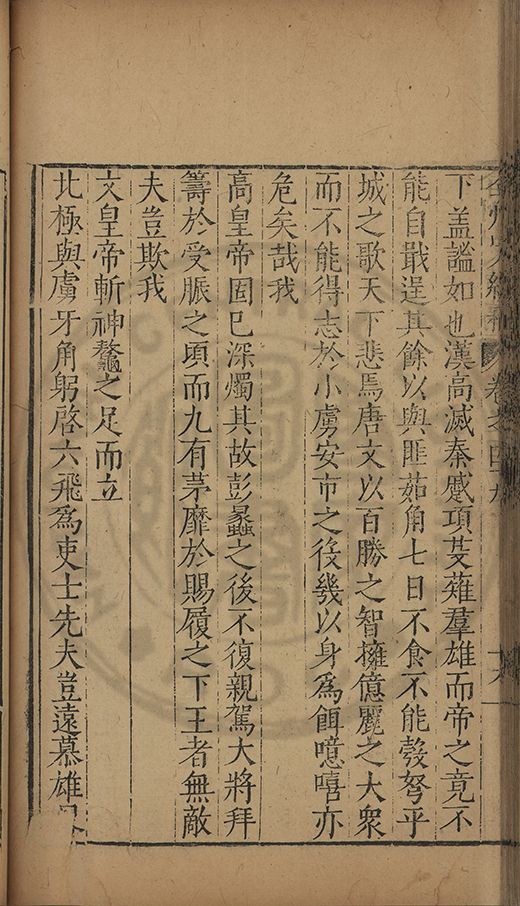 弇州史
卷之四十九
十八
下蓋謐如也漢高滅秦蹙項芟薙羣雄而帝之竟不
能自戢逞其餘以與匪茹角七日不食不能彀弩乎
城之歌天下悲焉唐文以百勝之智擁億麗之大衆
而不能得志於小虜安市之役幾以身爲餌噫嘻亦
危矣哉我
高皇帝固已深燭其故彭蠡之後不復親駕大將拜
籌於受脤之頃而九有茅靡於賜履之下王者無敵
夫豈欺我
文皇帝斬神鼇之足而立
北極與虜牙角躬啓六飛爲吏士先夫豈遠慕雄